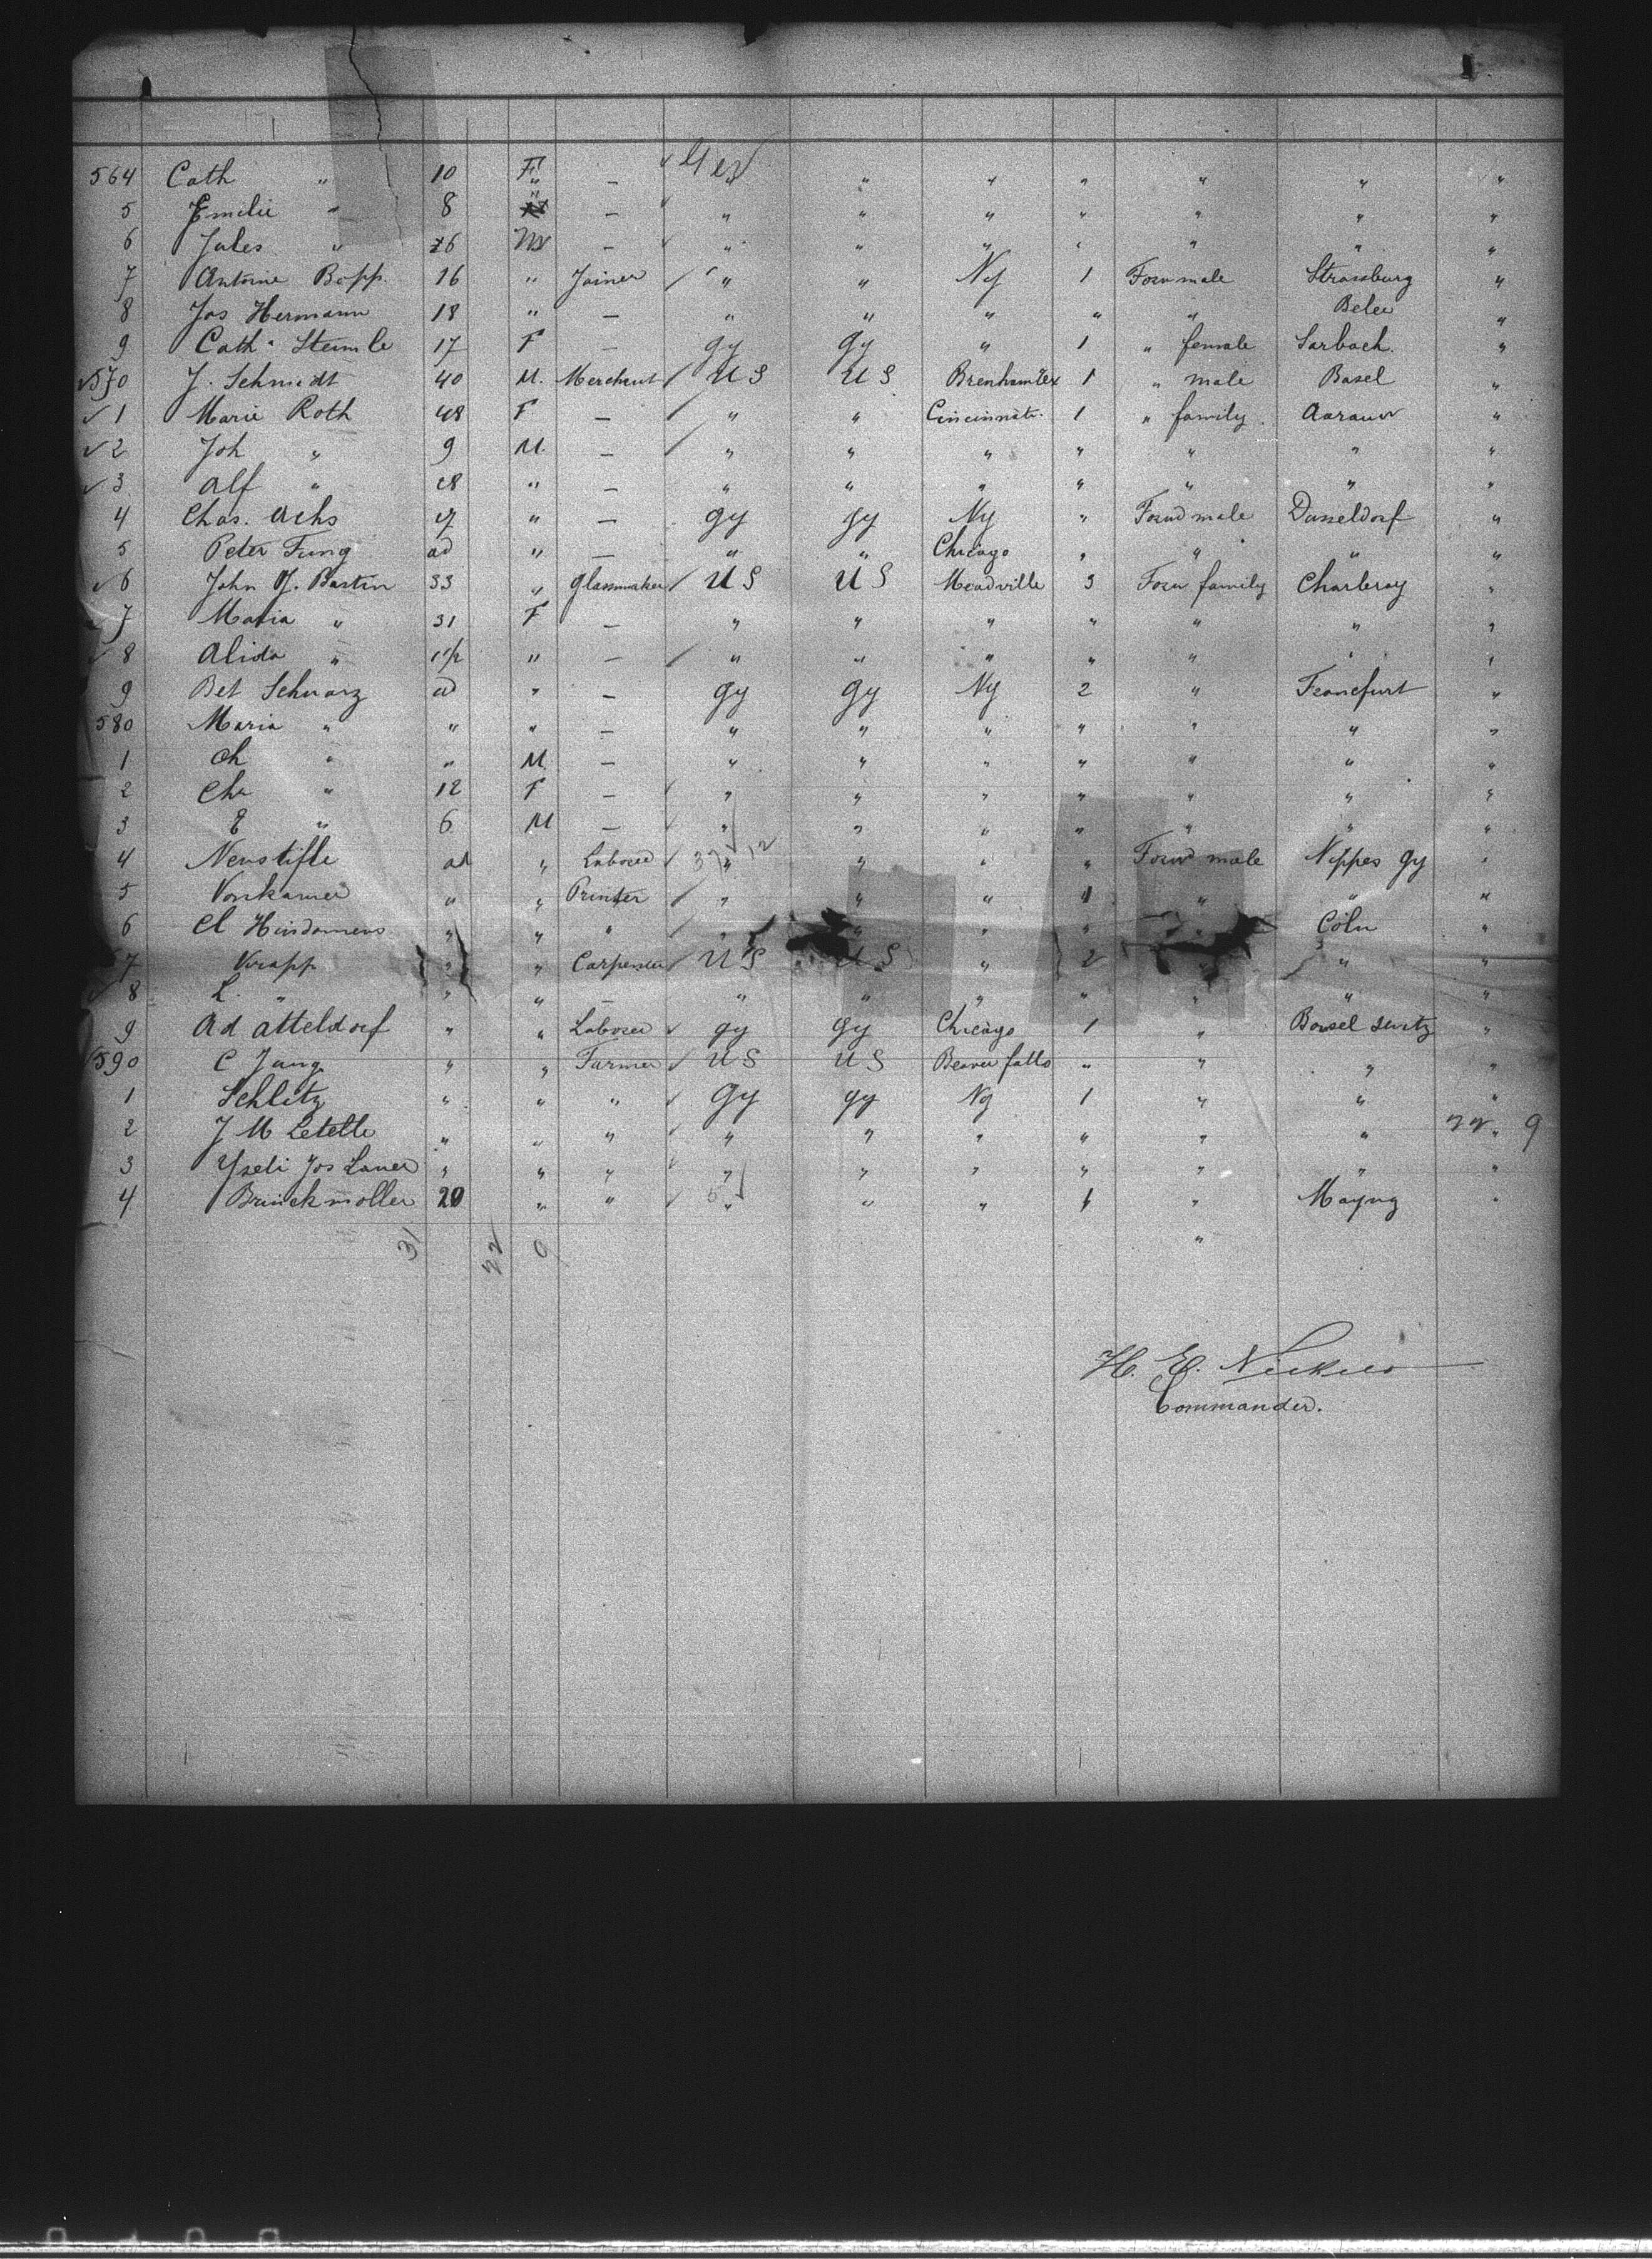 564 Cath " 10 F " — Ger " " " " " " "
5 Emilie " 8 " — " " " " " " "
6 Jules " 26 M — " " " " " " "
7 Antoine Bopp. 16 " Joiner " " Ny 1 Forw male Strassburg "
8 Jos Hermann 18 " — " " " " " "
9 Cath Stemle 17 F — Gy Gy " 1 " female Sarbach. "
570 J. Schmidt 40 M. Merchant U S U S Brenham Tex 1 " male Basel "
1 Marie Roth 48 F — " " Cincinnati 1 " family Aarau "
2 Joh " 9 M. — " " " " " " "
3 Alf " " — " " " " " " "
4 Chas. Achs " — Gy Gy Ny " Forwd male Dusseldorf "
5 Peter Fung ad " — " " Chicago " " " "
6 John J. Bastin 33 " Glassmaker U S U S Meadville 3 Forw family Charleroy "
7 Maria " 31 F — " " " " " " "
8 Alida " " — " " " " " " "
9 Bet Schwarz ad " — Gy Gy Ny 2 " Francfurt "
580 Maria " " " — " " " " " " "
1 Ch " " M — " " " " " " "
2 Cha " 12 F — " " " " " " "
3 E " 6 M — " " " " " " "
4 Neustifle ad " Laborer " " " " Forw male Nippes Gy "
5 Vonkamer " " Printer " " " 1 " " "
6 Cl " " " " " " " " Cöln "
7 Krapp " " Carpenter U S U S " 2 " " "
8 L. " " " — " " " " " " "
9 Ad Atteldorf " " Laborer Gy Gy Chicago 1 " Basel Switz "
590 C Jung " " Farmer U S U S Beaver falls " " " "
1 Schlitz " " " Gy Gy Ny 1 " " "
2 J M Letelle " " " " " " " " " 22 " 9
3 Yseli Jos Lauer " " " " " " " " " "
4 Brinckmoller 20 " " " " " 1 " Mayng "
31 22 9 "
H. E. Nickels
Commander.